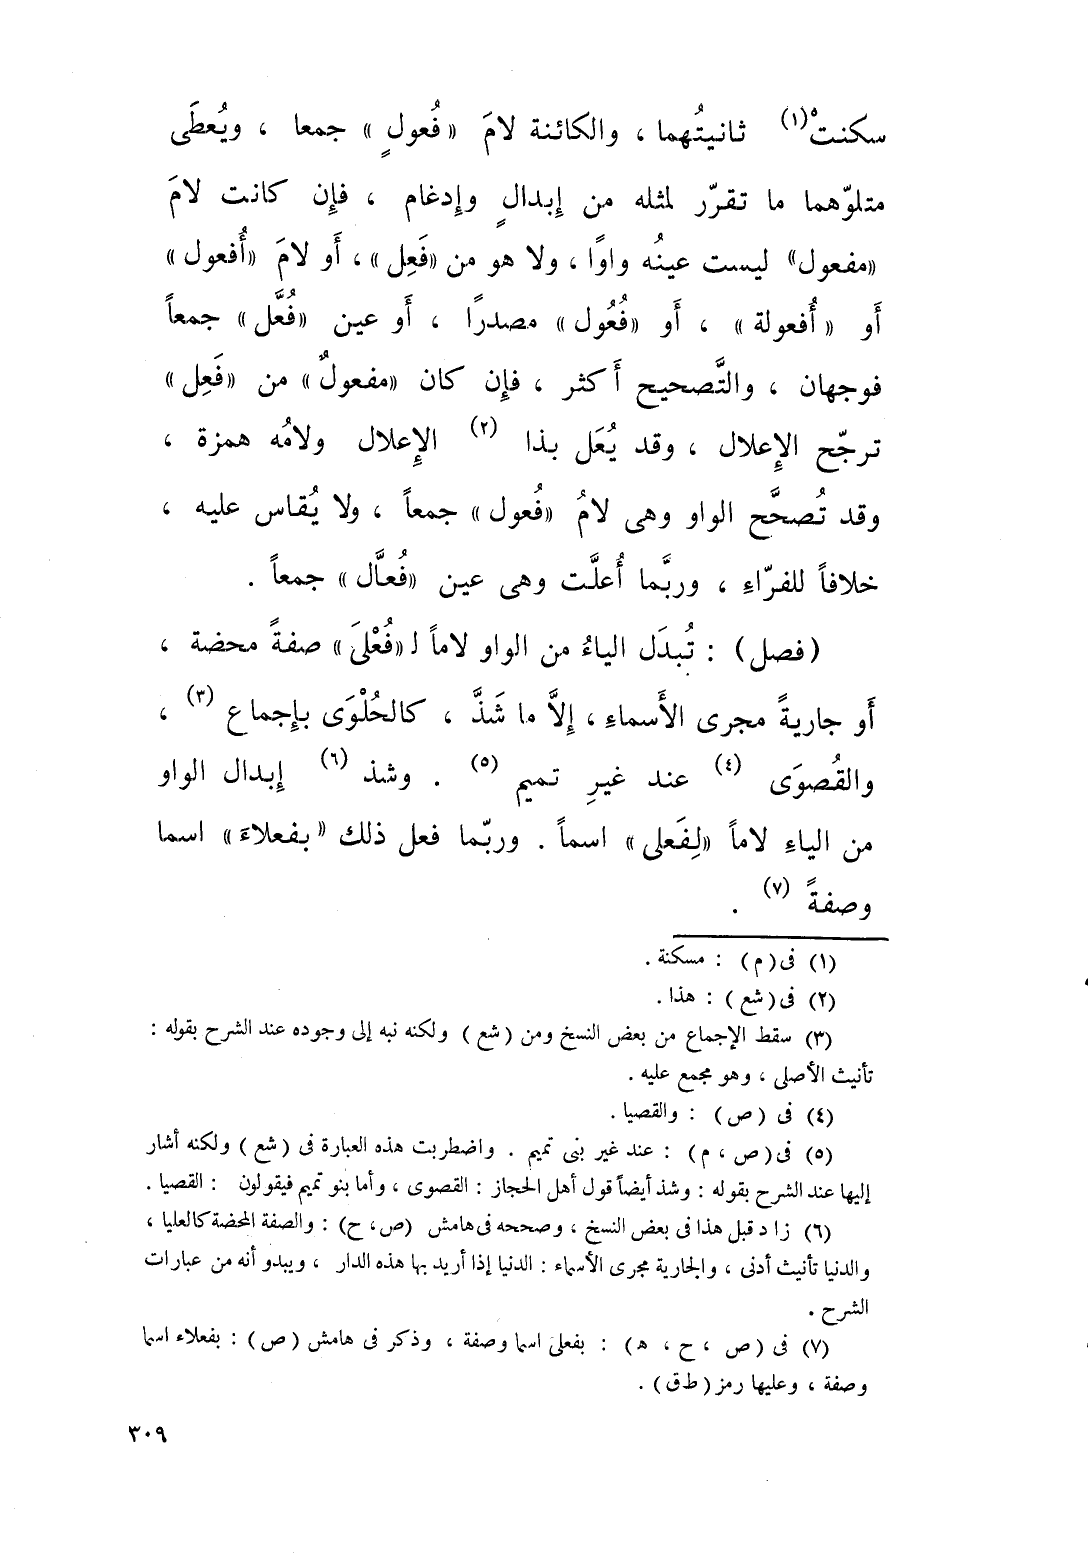 سكنتْ(١) ثانيتُهما ، والكائنة لامَ «فُعولٍ» جمعا ، ويُعطَى
متلوّهما ما تقرّر لمثله من إبدالٍ وإدغام ، فإن كانت لامَ
«مفعول» ليست عينُه واوًا ، ولا هو من «فَعِل» ، أَو لامَ «أُفعول»
أَو «أُفعولة» ، أَو «فُعُول» مصدرًا ، أَو عين «فُعَّل» جمعاً
فوجهان ، والتَّصحيح أَكثر ، فإن كان «مفعولٌ» من «فَعِل»
ترجّح الإعلال ، وقد يُعَل بذا (٢) الإعلال ولامُه همزة ،
وقد تُصحَّح الواو وهى لامُ «فُعول» جمعاً ، ولا يُقاس عليه ،
خلافاً للفرّاءِ ، وربَّما أُعلَّت وهى عين «فُعَّال» جمعاً .
(فصل) : تُبدَل الياءُ من الواو لاماً لـ «فُعْلىَ» صفةً محضة ،
أَو جاريةً مجرى الأَسماءِ ، إلاَّ ما شَذَّ ، كالحُلْوَى بإجماع (٣) ،
والقُصوَى (٤) عند غيرِ تميم (٥) . وشذ (٦) إبدال الواو
من الياءِ لاماً «لِفَعلى» اسماً . وربّما فعل ذلك «بفعلاءَ» اسما
وصفةً (٧) .
(١) فى (م) : مسكنة .
(٢) فى (شع) : هذا .
(٣) سقط الإجماع من بعض النسخ ومن (شع) ولكنه نبه إلى وجوده عند الشرح بقوله :
تأنيث الأصلى ، وهو مجمع عليه .
(٤) فى (ص) : والقصيا .
(٥) فى (ص ، م) : عند غير بنى تميم . واضطربت هذه العبارة فى (شع) ولكنه أشار
إليها عند الشرح بقوله : وشذ أيضاً قول أهل الحجاز : القصوى ، وأما بنو تميم فيقولون : القصيا .
(٦) زاد قبل هذا فى بعض النسخ ، وصححه فى هامش (ص ، ح) : والصفة المحضة كالعليا ،
والدنيا تأنيث أدنى ، والجارية مجرى الأسماء : الدنيا إذا أريد بها هذه الدار ، ويبدو أنه من عبارات
الشرح .
(٧) فى (ص ، ح ، ه) : بفعلى اسما وصفة ، وذكر فى هامش (ص) : بفعلاء اسما
وصفة ، وعليها رمز (ط ق) .
٣٠٩